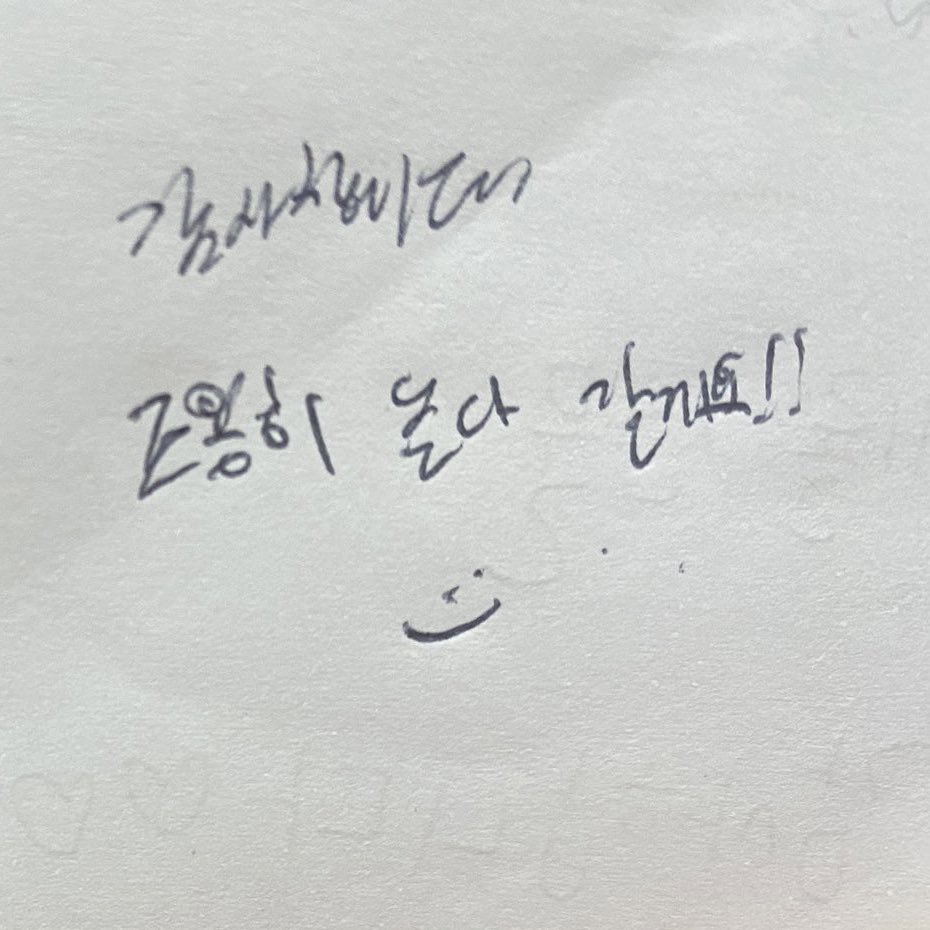 감사합니다
조용히 놀다 갈게요!!